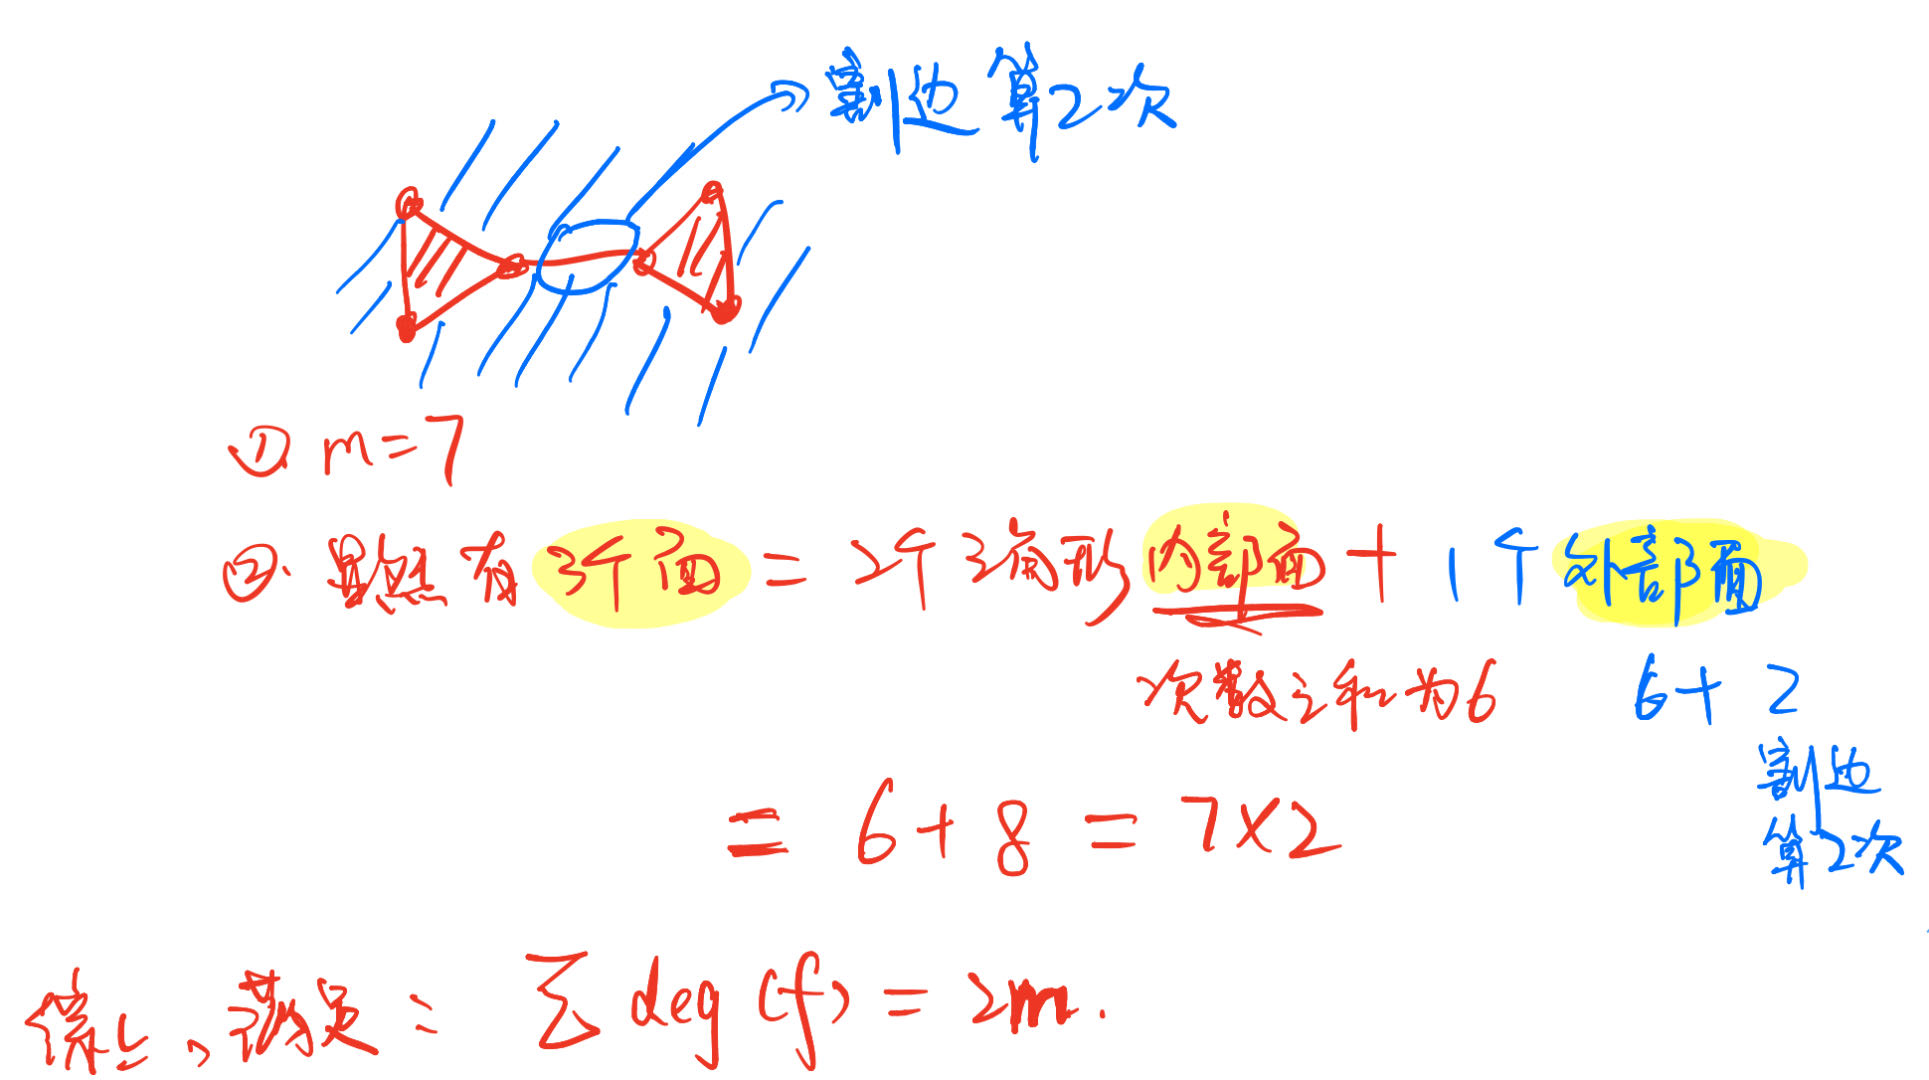 割边算2次
① m=7
②. 显然有3个面 = 2个三角形内部面 + 1个外部面
次数之和为6 6+2
割边
算2次
= 6+8 = 7×2
综上,满足: ∑deg(f) = 2m.